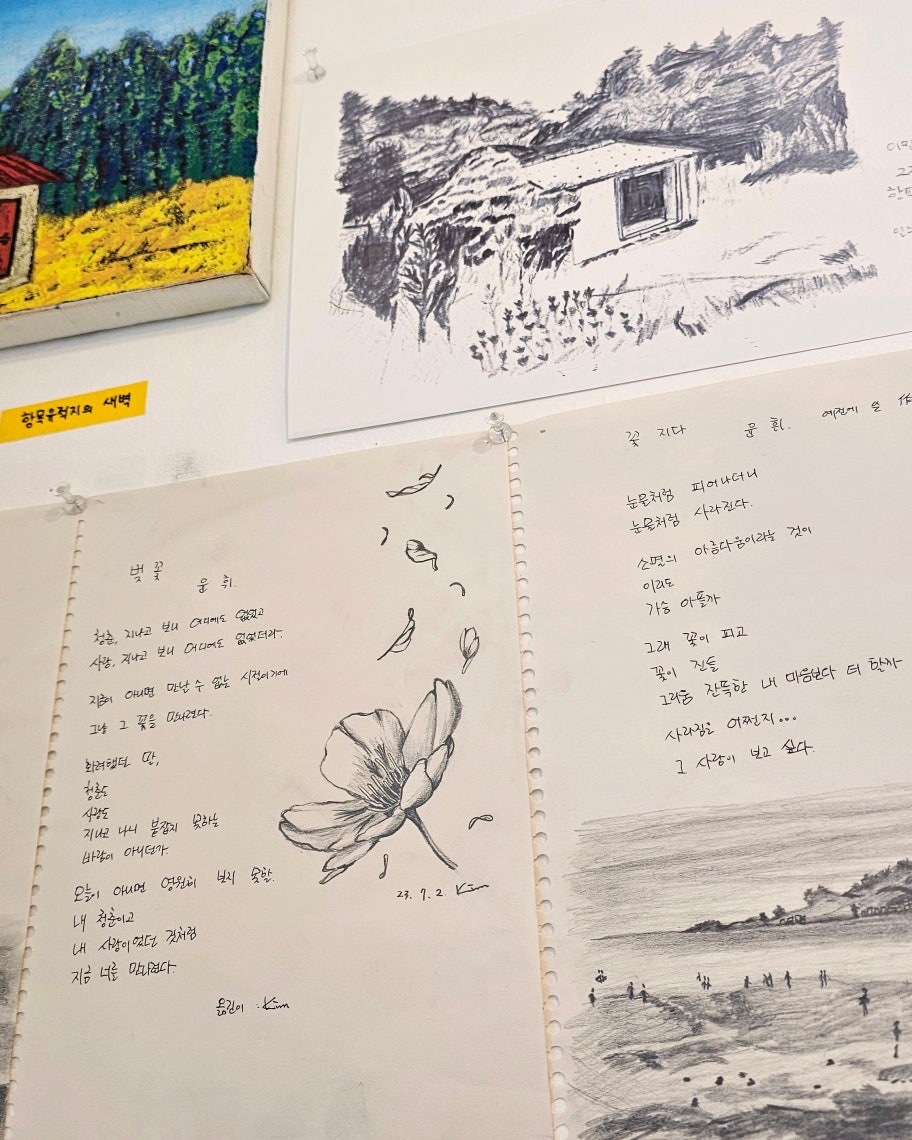 항목유적지의 새벽
벚꽃
윤 휘.
청춘, 지나고 보니 어디에도 없었고
사랑, 지나고 보니 어디에도 없었더라.
지금이 아니면 만날 수 없는 시절이기에
그냥 그 꽃을 만나련다.
화려했던 딸,
청춘도
사랑도
지나고 나니 붙잡지 못하는
바람이 아니던가.
오늘이 아니면 영원히 보지 못할.
내 청춘이고
내 사랑이었던 것처럼
지금 너를 만나련다.
옮긴이 : Kim
23. 7. 2 Kim
꽃 지다 윤 휘. 예전에 쓴 作
눈물처럼 피어나더니
눈물처럼 사라진다.
소멸의 아름다움이라는 것이
이리도
가슴 아플까
그래 꽃이 피고
꽃이 진들
그리움 잔뜩한 내 마음보다 더 할까
사라짐은 어쩐지...
그 사랑이 보고 싶다.